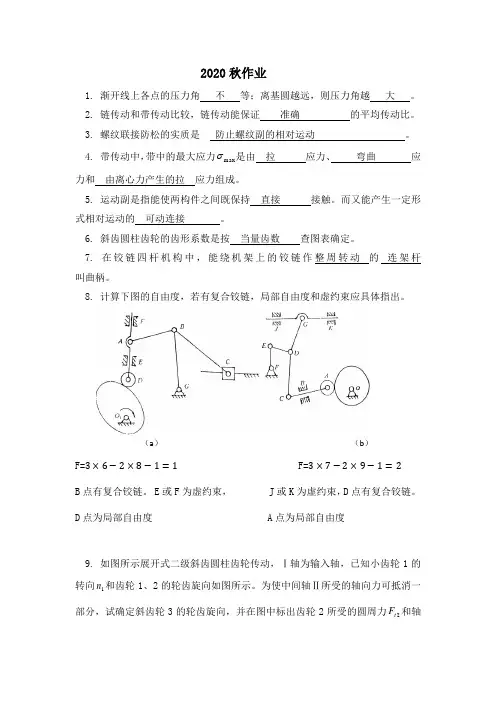 2020秋作业
1. 渐开线上各点的压力角 不 等;离基圆越远,则压力角越 大 。
2. 链传动和带传动比较,链传动能保证 准确 的平均传动比。
3. 螺纹联接防松的实质是 防止螺纹副的相对运动 。
4. 带传动中,带中的最大应力σmax是由 拉 应力、 弯曲 应
力和 由离心力产生的拉 应力组成。
5. 运动副是指能使两构件之间既保持 直接 接触。而又能产生一定形
式相对运动的 可动连接 。
6. 斜齿圆柱齿轮的齿形系数是按 当量齿数 查图表确定。
7. 在铰链四杆机构中,能绕机架上的铰链作整周转动 的 连架杆
叫曲柄。
8. 计算下图的自由度,若有复合铰链,局部自由度和虚约束应具体指出。
F
A
B
E
D
C
G
O₁
J
G
K
E
D
F
B
A
O
C
(a) (b)
F=3×6−2×8−1=1 F=3×7−2×9−1=2
B点有复合铰链。E或F为虚约束, J或K为虚约束,D点有复合铰链。
D点为局部自由度 A点为局部自由度
9. 如图所示展开式二级斜齿圆柱齿轮传动,Ⅰ轴为输入轴,已知小齿轮1的
转向n₁和齿轮1、2的轮齿旋向如图所示。为使中间轴Ⅱ所受的轴向力可抵消一
部分,试确定斜齿轮3的轮齿旋向,并在图中标出齿轮2所受的圆周力Ft2和轴